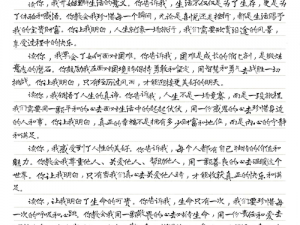 读你，我开始理解生活的意义。你告诉我，生活不仅仅是为了生存，更是为
了体验和感悟。你教会我珍惜每一个瞬间，无论是喜悦还是悲伤，都是生活赐予
我的宝贵财富。你让我明白，人生就像一场旅行，我们需要欣赏沿途的风景，
享受过程中的快乐。
读你，我学会了如何面对困难。你告诉我，困难是成长的
意志的磨石。你鼓励我在面对困境时保持勇敢和坚定，用智慧和勇气去战胜一切
挑战。你让我明白，只有经历过风雨，才能见到更美好的明天。
读你，我领悟了人生的真谛。你告诉我，人生不是一场竞赛，而是一段旅程。
我们需要用一颗平和的心去面对生活中的起起伏伏，用一个感恩的心去珍惜身边
的人和事。你让我明白，真正的幸福不是拥有多少财富和地位，而是内心的宁静
和满足。
读你，我感受到了人性的美好。你告诉我，每个人都有自己独特的价值和
魅力。你教会我尊重他人、关爱他人、帮助他人，用一颗善良的心去温暖这个
世界。你让我明白，只有当我们真心去关爱他人时，才能收获真正的快乐和满
足。
读你，我明白了生命的可贵。你告诉我，生命只有一次，我们要珍惜每
一次的呼吸和心跳。你教会我用一颗敬畏的心去对待生命，用一个真诚和爱去